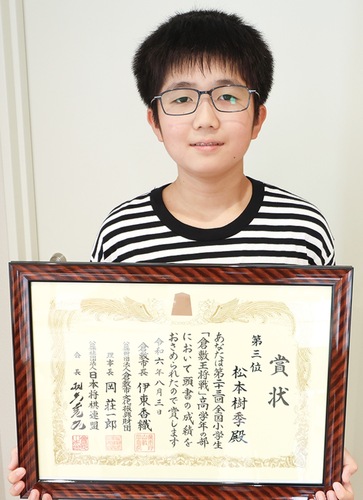 賞状
第三位
松本樹季殿
あなたは第二十三回全国小学生
「倉敷王将戦」高学年の部
において頭書の成績を
おさめられたので賞します
令和六年八月三日
倉敷市長 伊東香織
公益財団法人倉敷市文化振興財団
理事長 岡荘一郎
公益社団法人日本将棋連盟
会長